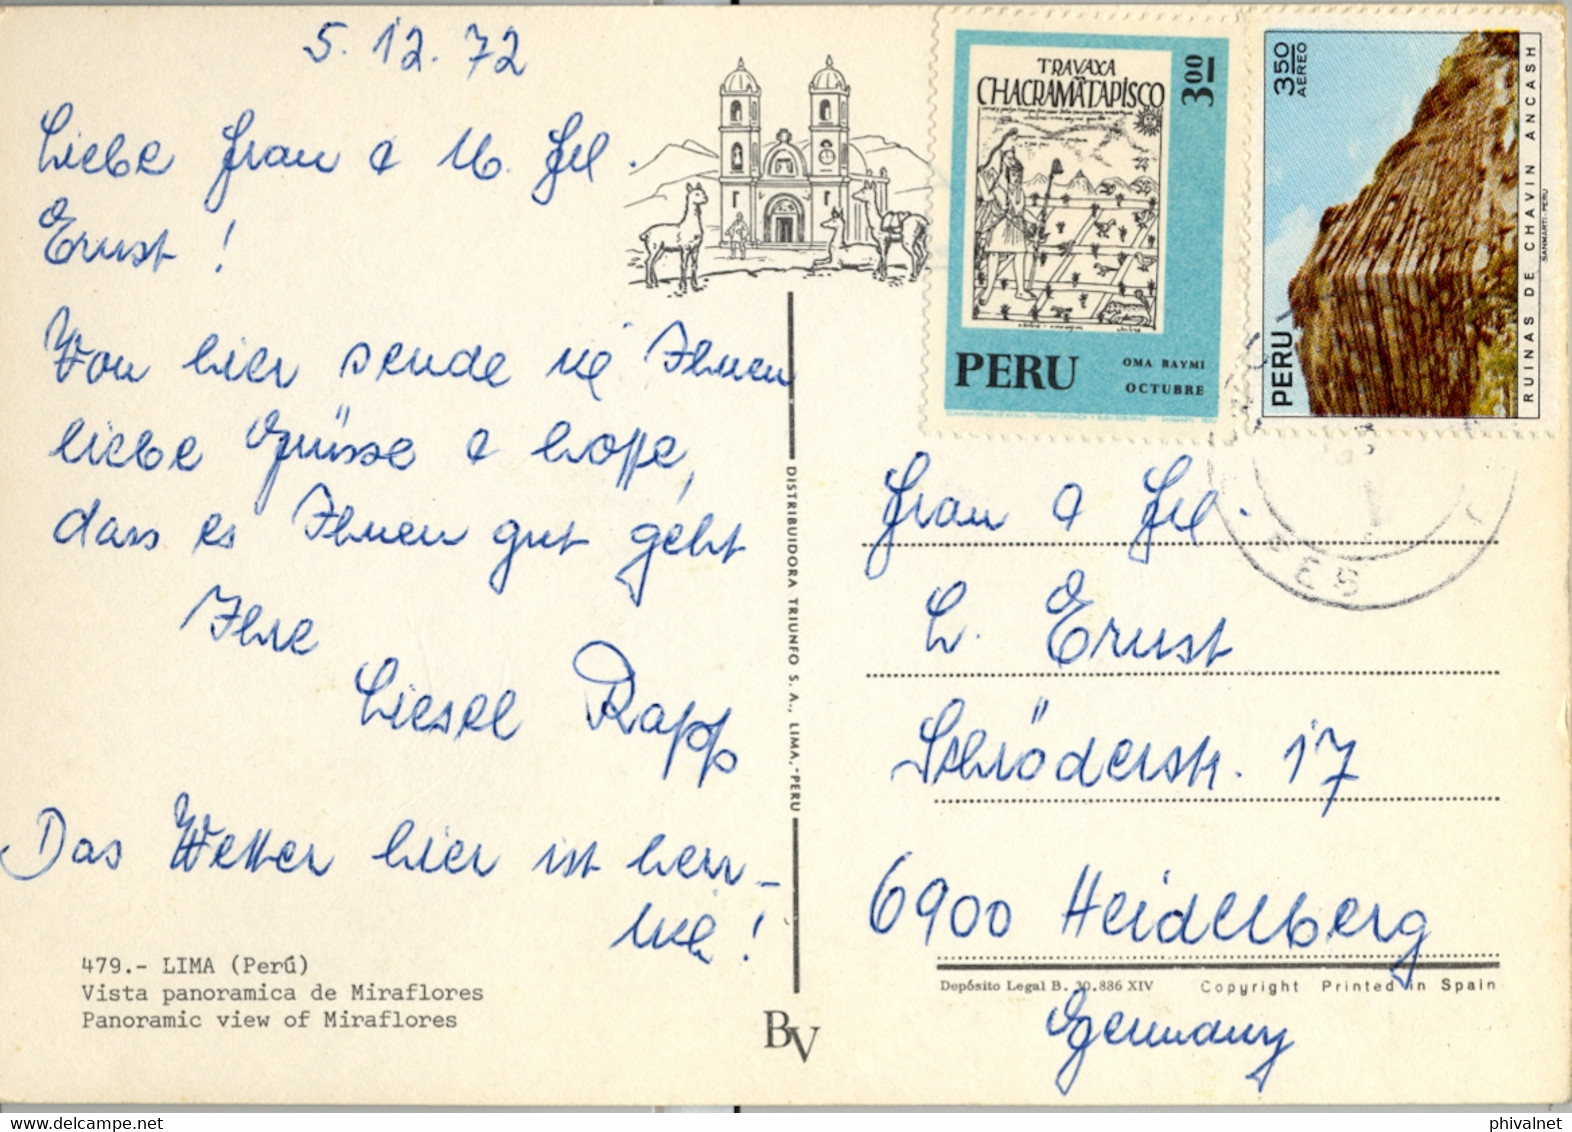 5. 12. 72
Liebe Frau & U. Frl.
Ernst!
Von hier sende ich Ihnen
liebe Grüsse & hoffe,
dass es Ihnen gut geht
Ihre
Liesel Rapp
Das Wetter hier ist herr-
lich!
479.- LIMA (Perú)
Vista panoramica de Miraflores
Panoramic view of Miraflores
DISTRIBUIDORA TRIUNFO S. A., LIMA,-PERU
BV
TRAVAXA
CHACRAMATAPISCO
3 00
PERU
OMA RAYMI
OCTUBRE
3 50
AEREO
PERU
RUINAS DE CHAVIN ANCASH
SANMARTI-PERU
Frau & Frl.
L. Ernst
Schröderstr. 17
6900 Heidelberg
Depósito Legal B. 30.886 XIV
Copyright Printed in Spain
Germany
phivalnet